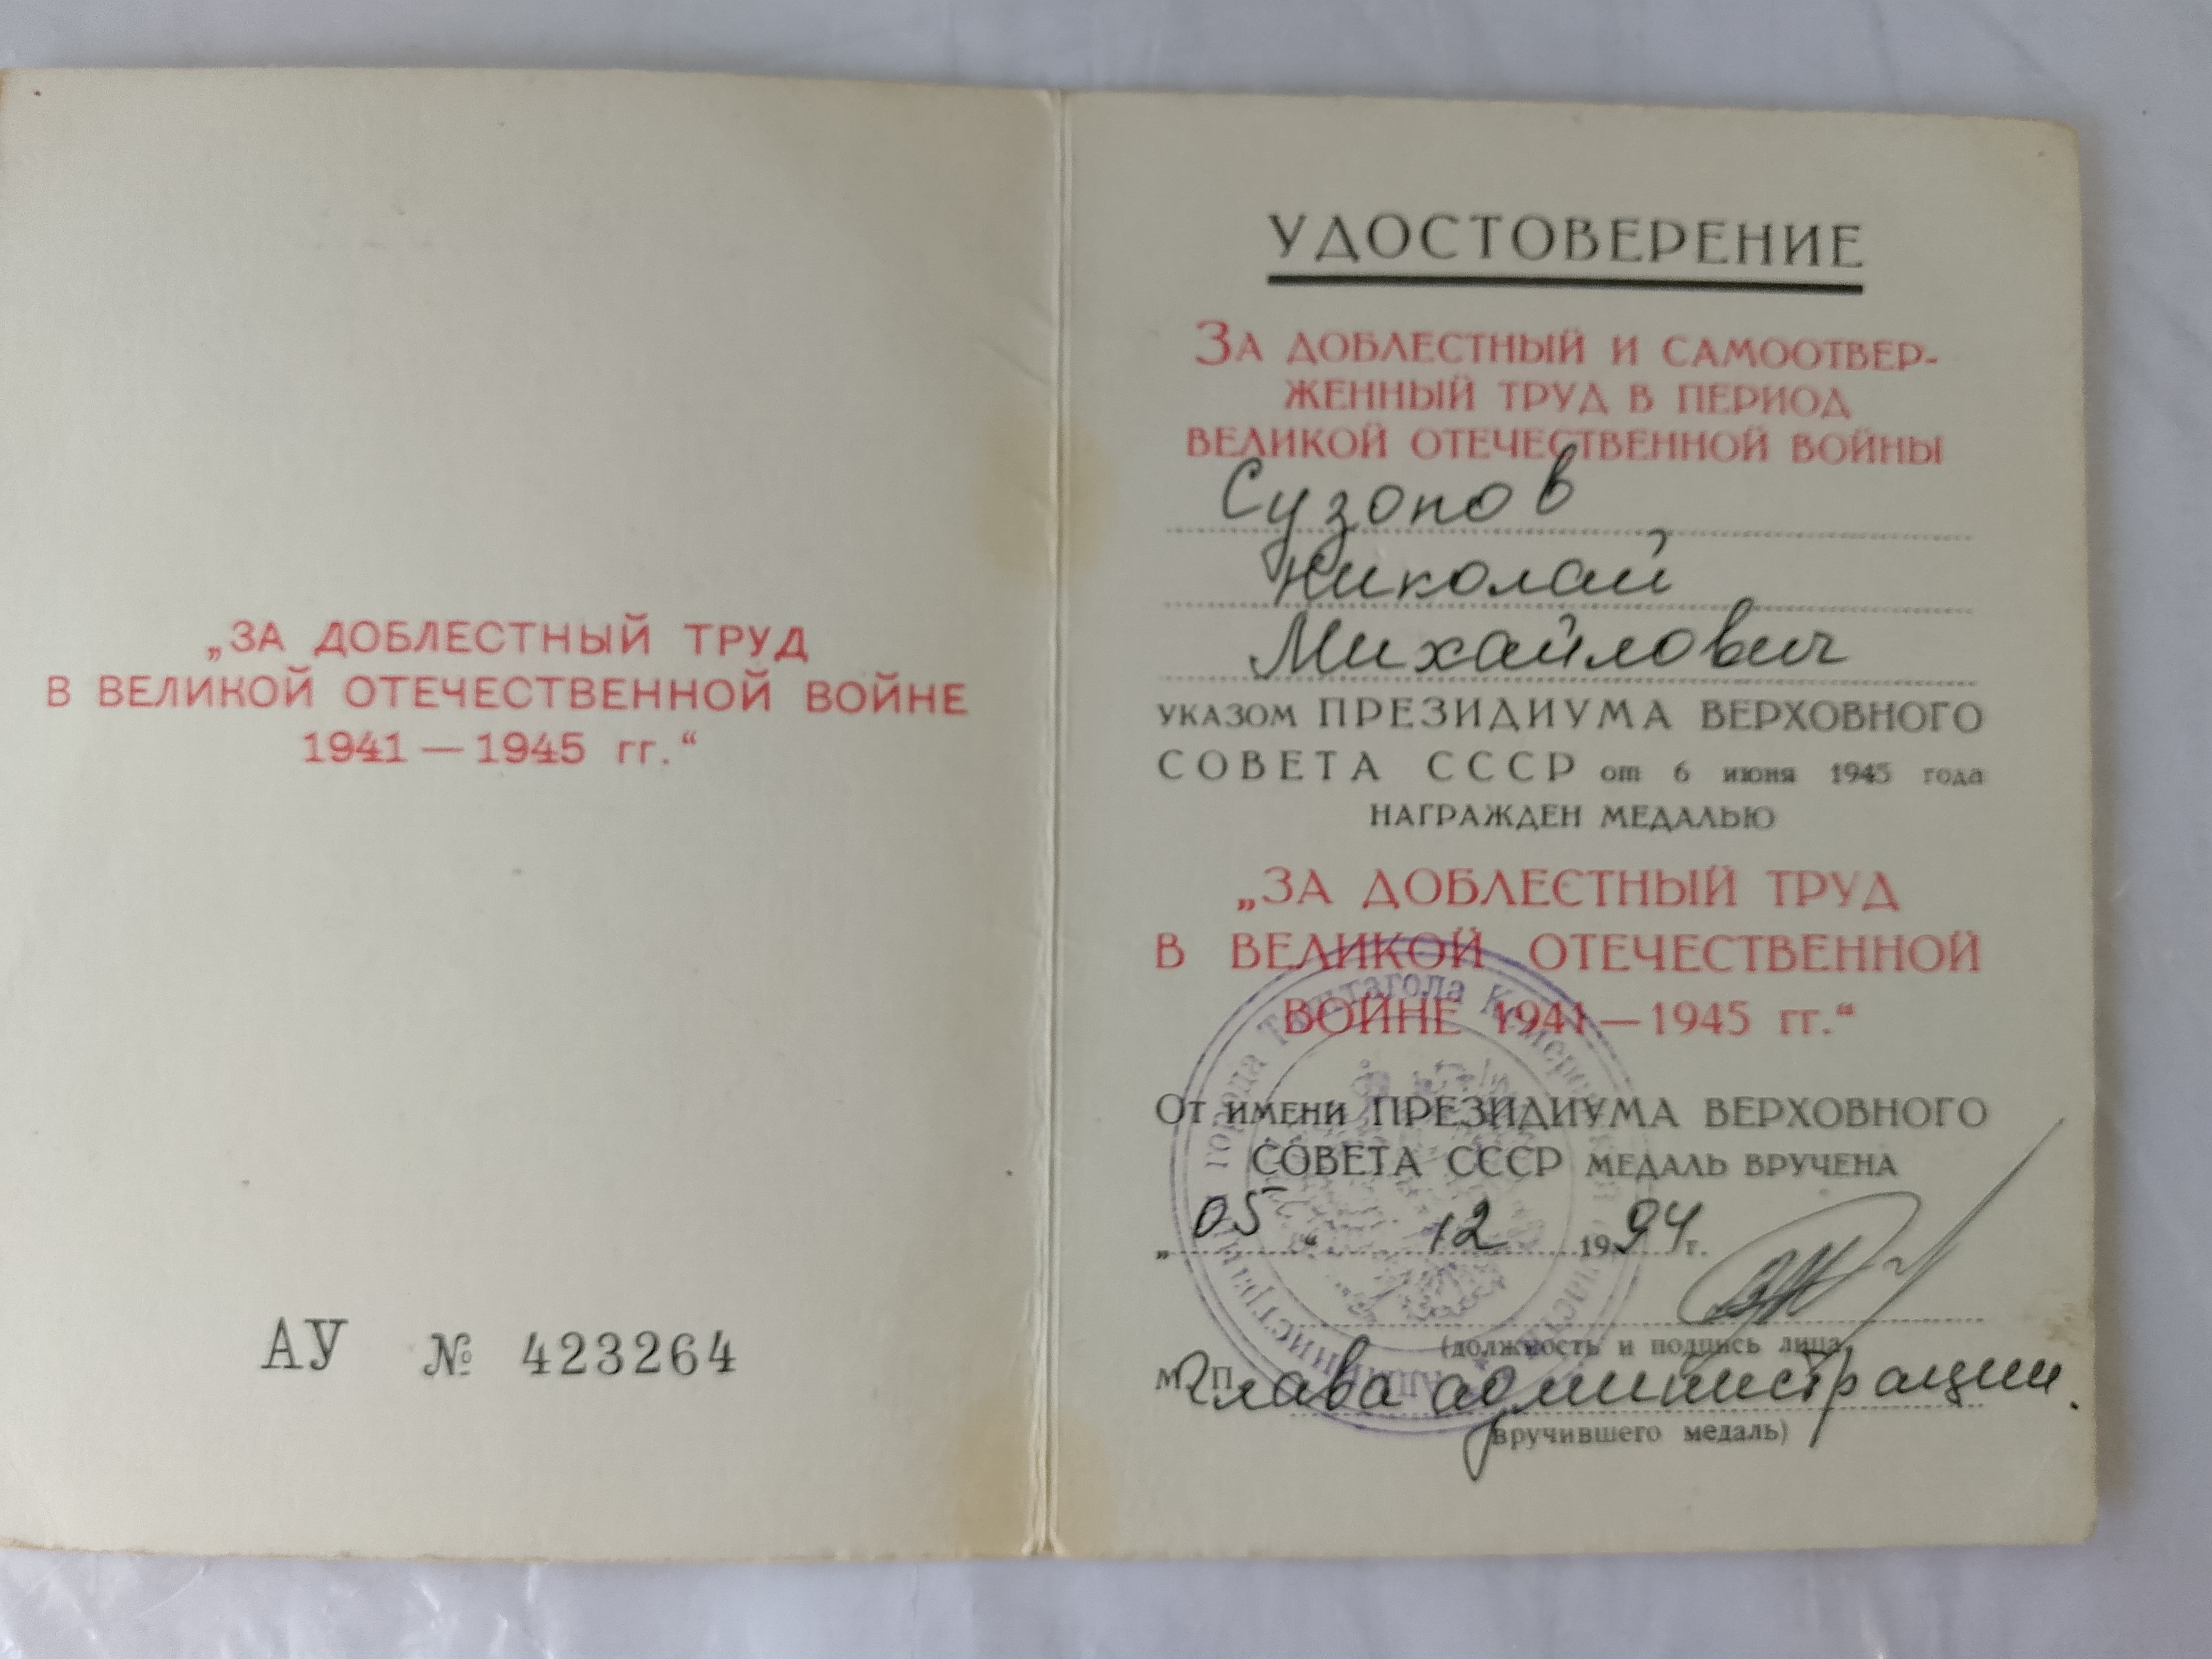 „ЗА ДОБЛЕСТНЫЙ ТРУД
В ВЕЛИКОЙ ОТЕЧЕСТВЕННОЙ ВОЙНЕ
1941 — 1945 гг.“
АУ № 423264
УДОСТОВЕРЕНИЕ
ЗА ДОБЛЕСТНЫЙ И САМООТВЕР-
ЖЕННЫЙ ТРУД В ПЕРИОД
ВЕЛИКОЙ ОТЕЧЕСТВЕННОЙ ВОЙНЫ
Сузопов
Николай
Михайлович
УКАЗОМ ПРЕЗИДИУМА ВЕРХОВНОГО
СОВЕТА СССР от 6 июня 1945 года
НАГРАЖДЕН МЕДАЛЬЮ
„ЗА ДОБЛЕСТНЫЙ ТРУД
В ВЕЛИКОЙ ОТЕЧЕСТВЕННОЙ
ВОЙНЕ 1941—1945 гг.“
ОТ ИМЕНИ ПРЕЗИДИУМА ВЕРХОВНОГО
СОВЕТА СССР МЕДАЛЬ ВРУЧЕНА
„05“ 12 1994 г.
(должность и подпись лица,
М. П. Глава администрации.
вручившего медаль)
города Таштагола